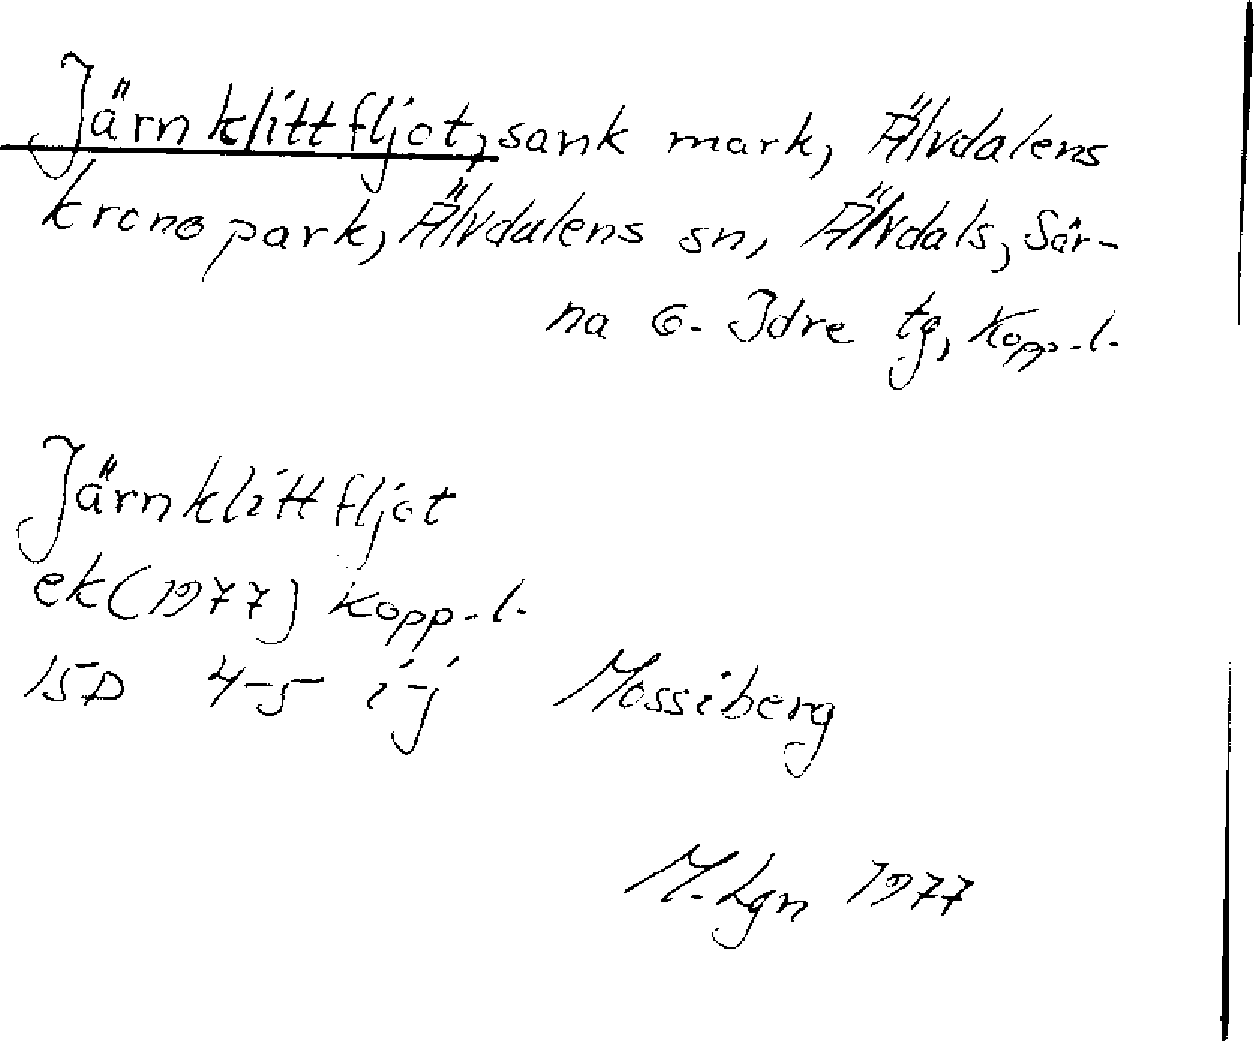 Järnklittfljot, sank mark, Älvdalens
kronopark, Älvdalens sn, Älvdals, Sär-
na o. Idre tg, Kopp.l.
Järnklittfljot
ek (1977) Kopp.l.
15D 4-5 i-j Mossiberg
M. Lgn 1977